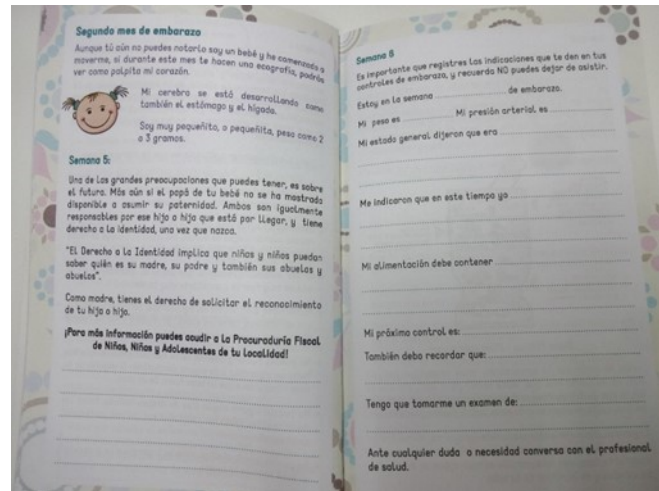 Segundo mes de embarazo
Aunque tú aún no puedes notarlo soy un bebé y he comenzado a
moverme, si durante este mes te hacen una ecografía, podrás
ver como palpita mi corazón.
Mi cerebro se está desarrollando como
también el estómago y el hígado.
Soy muy pequeñito, o pequeñita, peso como 2
o 3 gramos.
Semana 5:
Una de las grandes preocupaciones que puedes tener, es sobre
el futuro. Más aún si el papá de tu bebé no se ha mostrado
disponible a asumir su paternidad. Ambos son igualmente
responsables por ese hijo o hija que está por llegar, y tiene
derecho a la identidad, una vez que nazca.
"El Derecho a la Identidad implica que niñas y niños puedan
saber quién es su madre, su padre y también sus abuelas y
abuelos".
Como madre, tienes el derecho de solicitar el reconocimiento
de tu hijo o hija.
¡Para más información puedes acudir a la Procuraduría Fiscal
de Niñas, Niños y Adolescentes de tu Localidad!
Semana 6
Es importante que registres las indicaciones que te den en tus
controles de embarazo, y recuerda NO puedes dejar de asistir.
Estoy en la semana de embarazo.
Mi peso es Mi presión arterial es
Mi estado general dijeron que era
Me indicaron que en este tiempo ya
Mi alimentación debe contener
Mi próximo control es:
También debo recordar que:
Tengo que tomarme un examen de:
Ante cualquier duda o necesidad conversa con el profesional
de salud.